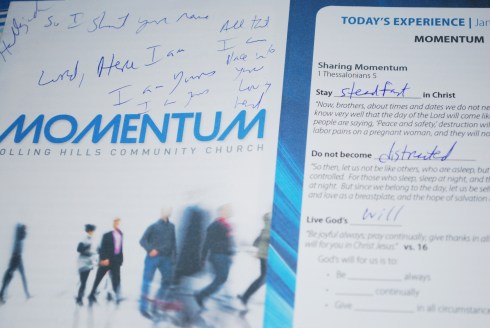 Hallelujah
So I Shout your name
Lord, Here I am
I am Yours
I am Yours
All that
I am
Place into
your
Loving
hand
MOMENTUM
OLLING HILLS COMMUNITY CHURCH
TODAY'S EXPERIENCE | Jan
MOMENTUM
Sharing Momentum
1 Thessalonians 5
Stay steadfast in Christ
"Now, brothers, about times and dates we do not nee
know very well that the day of the Lord will come like
people are saying, Peace and safety; destruction will
labor pains on a pregnant woman, and they will no
Do not become distracted
"So then, let us not be like others, who are asleep, but
controlled. For those who sleep, sleep at night, and th
at night. But since we belong to the day, let us be self
and love as a breastplate, and the hope of salvation
Live God's will
"Be joyful always; pray continually; give thanks in all
will for you in Christ Jesus." vs. 16
God's will for us is to:
• Be ______ always
• ______ continually
• Give ______ in all circumstance